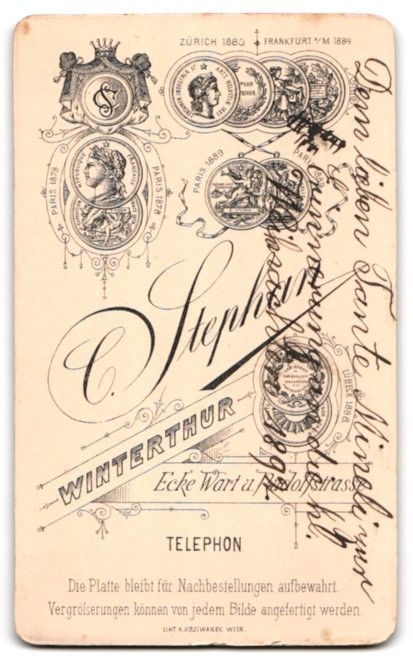 ZÜRICH 1883
FRANKFURT A/M 1884
PARIS 1878
PARIS 1878
PARIS 1889
C. Stephan
LÜBECK 1888
WINTERTHUR
Ecke Wart u. Rudolfstrasse
TELEPHON
Die Platte bleibt für Nachbestellungen aufbewahrt.
Vergrößerungen können von jedem Bilde angefertigt werden.
LITH. K. KRZIWANEK WIEN.
Dem lieben Tante Mineli zur
Erinnerung an